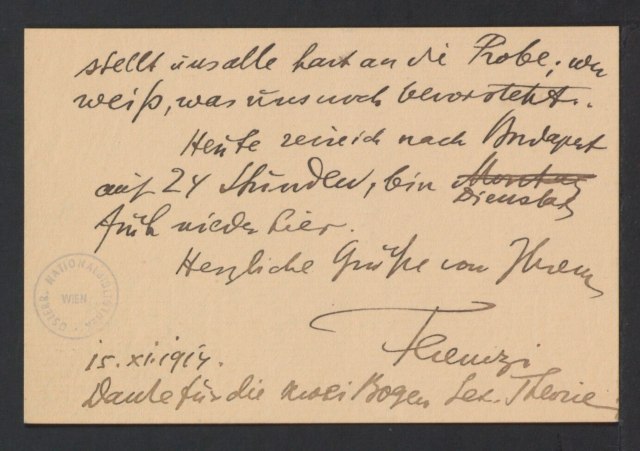 stellt uns alle hart an die Probe; wer
weiß, was uns noch bevorsteht..
Heute reise ich nach Budapest
auf 24 Stunden, bin Montag
Dienstag
früh wieder hier.
Herzliche Grüße von Ihrem
Ferenczi
15. XI. 1914.
Danke für die zwei Bogen Sex. Theorie
ÖSTERR. NATIONALBIBLIOTHEK
WIEN